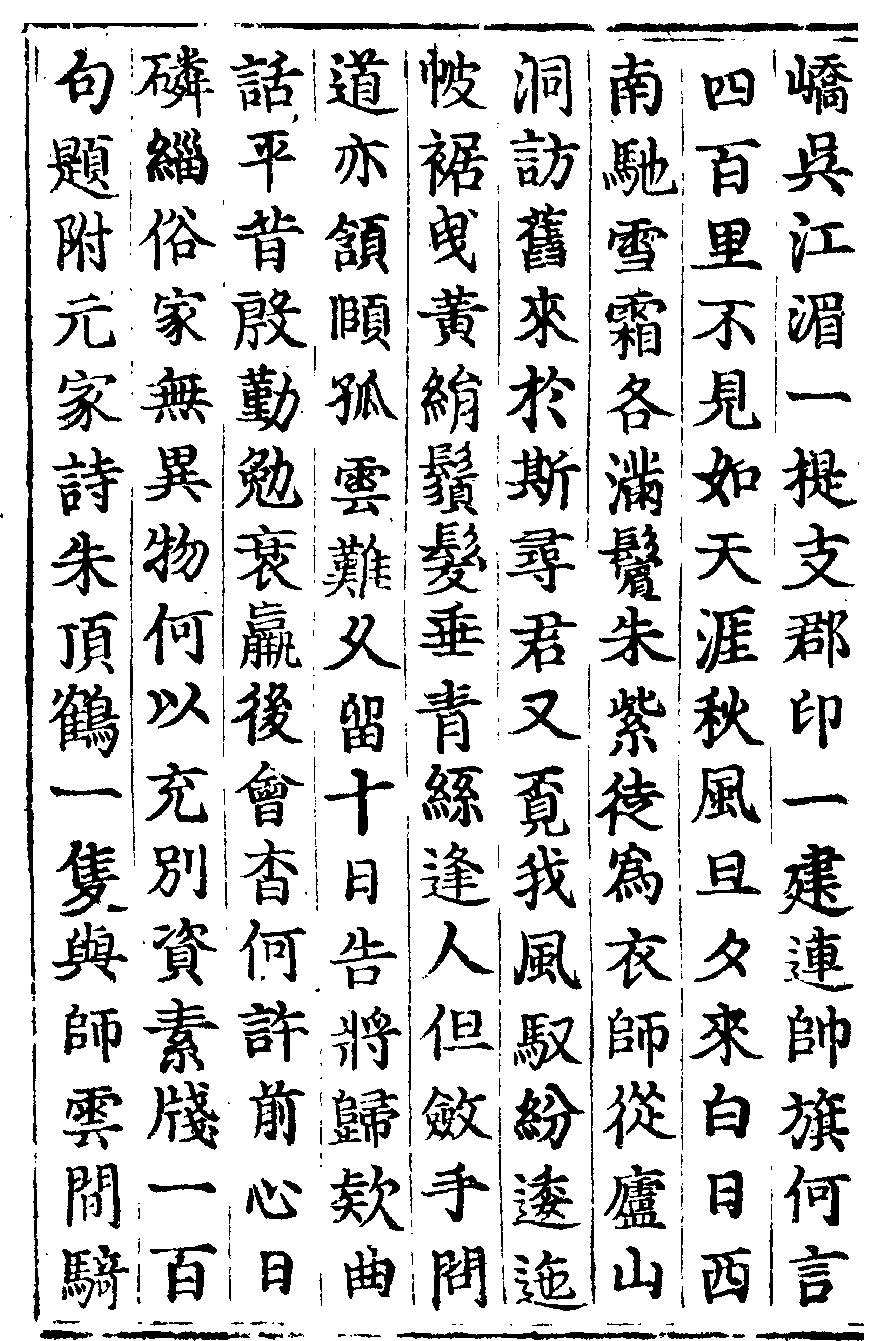 嶠吳江湄一提支郡印一建連帥旗何言
四百里不見如天涯秋風旦夕來白日西
南馳雪霜各滿鬢朱紫徒爲衣師從廬山
洞訪舊來於斯尋君又覔我風馭紛逶迤
帔裾曳黃絹鬚髮垂青絲逢人但斂手問
道亦頷頤孤雲難久留十日告將歸欵曲
話平昔殷勤勉衰羸後會杳何許前心日
磷緇俗家無異物何以充別資素牋一百
句題附元家詩朱頂鶴一隻與師雲間騎